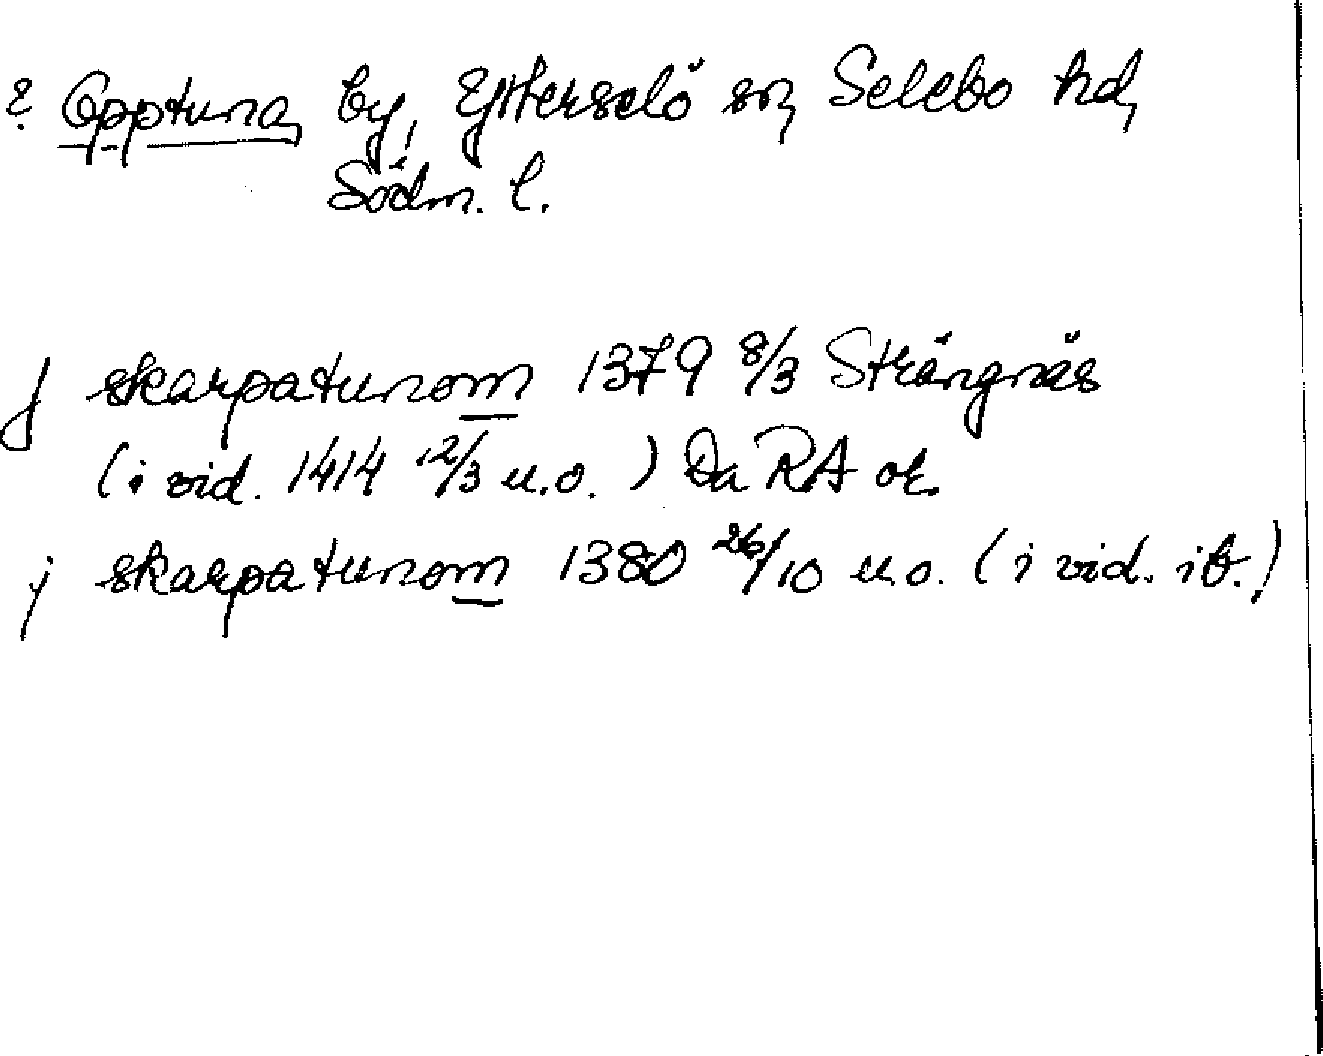 ? Opptuna, by, Ytterselö sn, Selebo hd,
Södm. l.
j skarpatunom 1379 8/3 Strängnäs
(i vid. 1414 12/3 u.o.) Da RA or.
j skarpatunom 1380 26/10 u.o. (i vid. ib.)